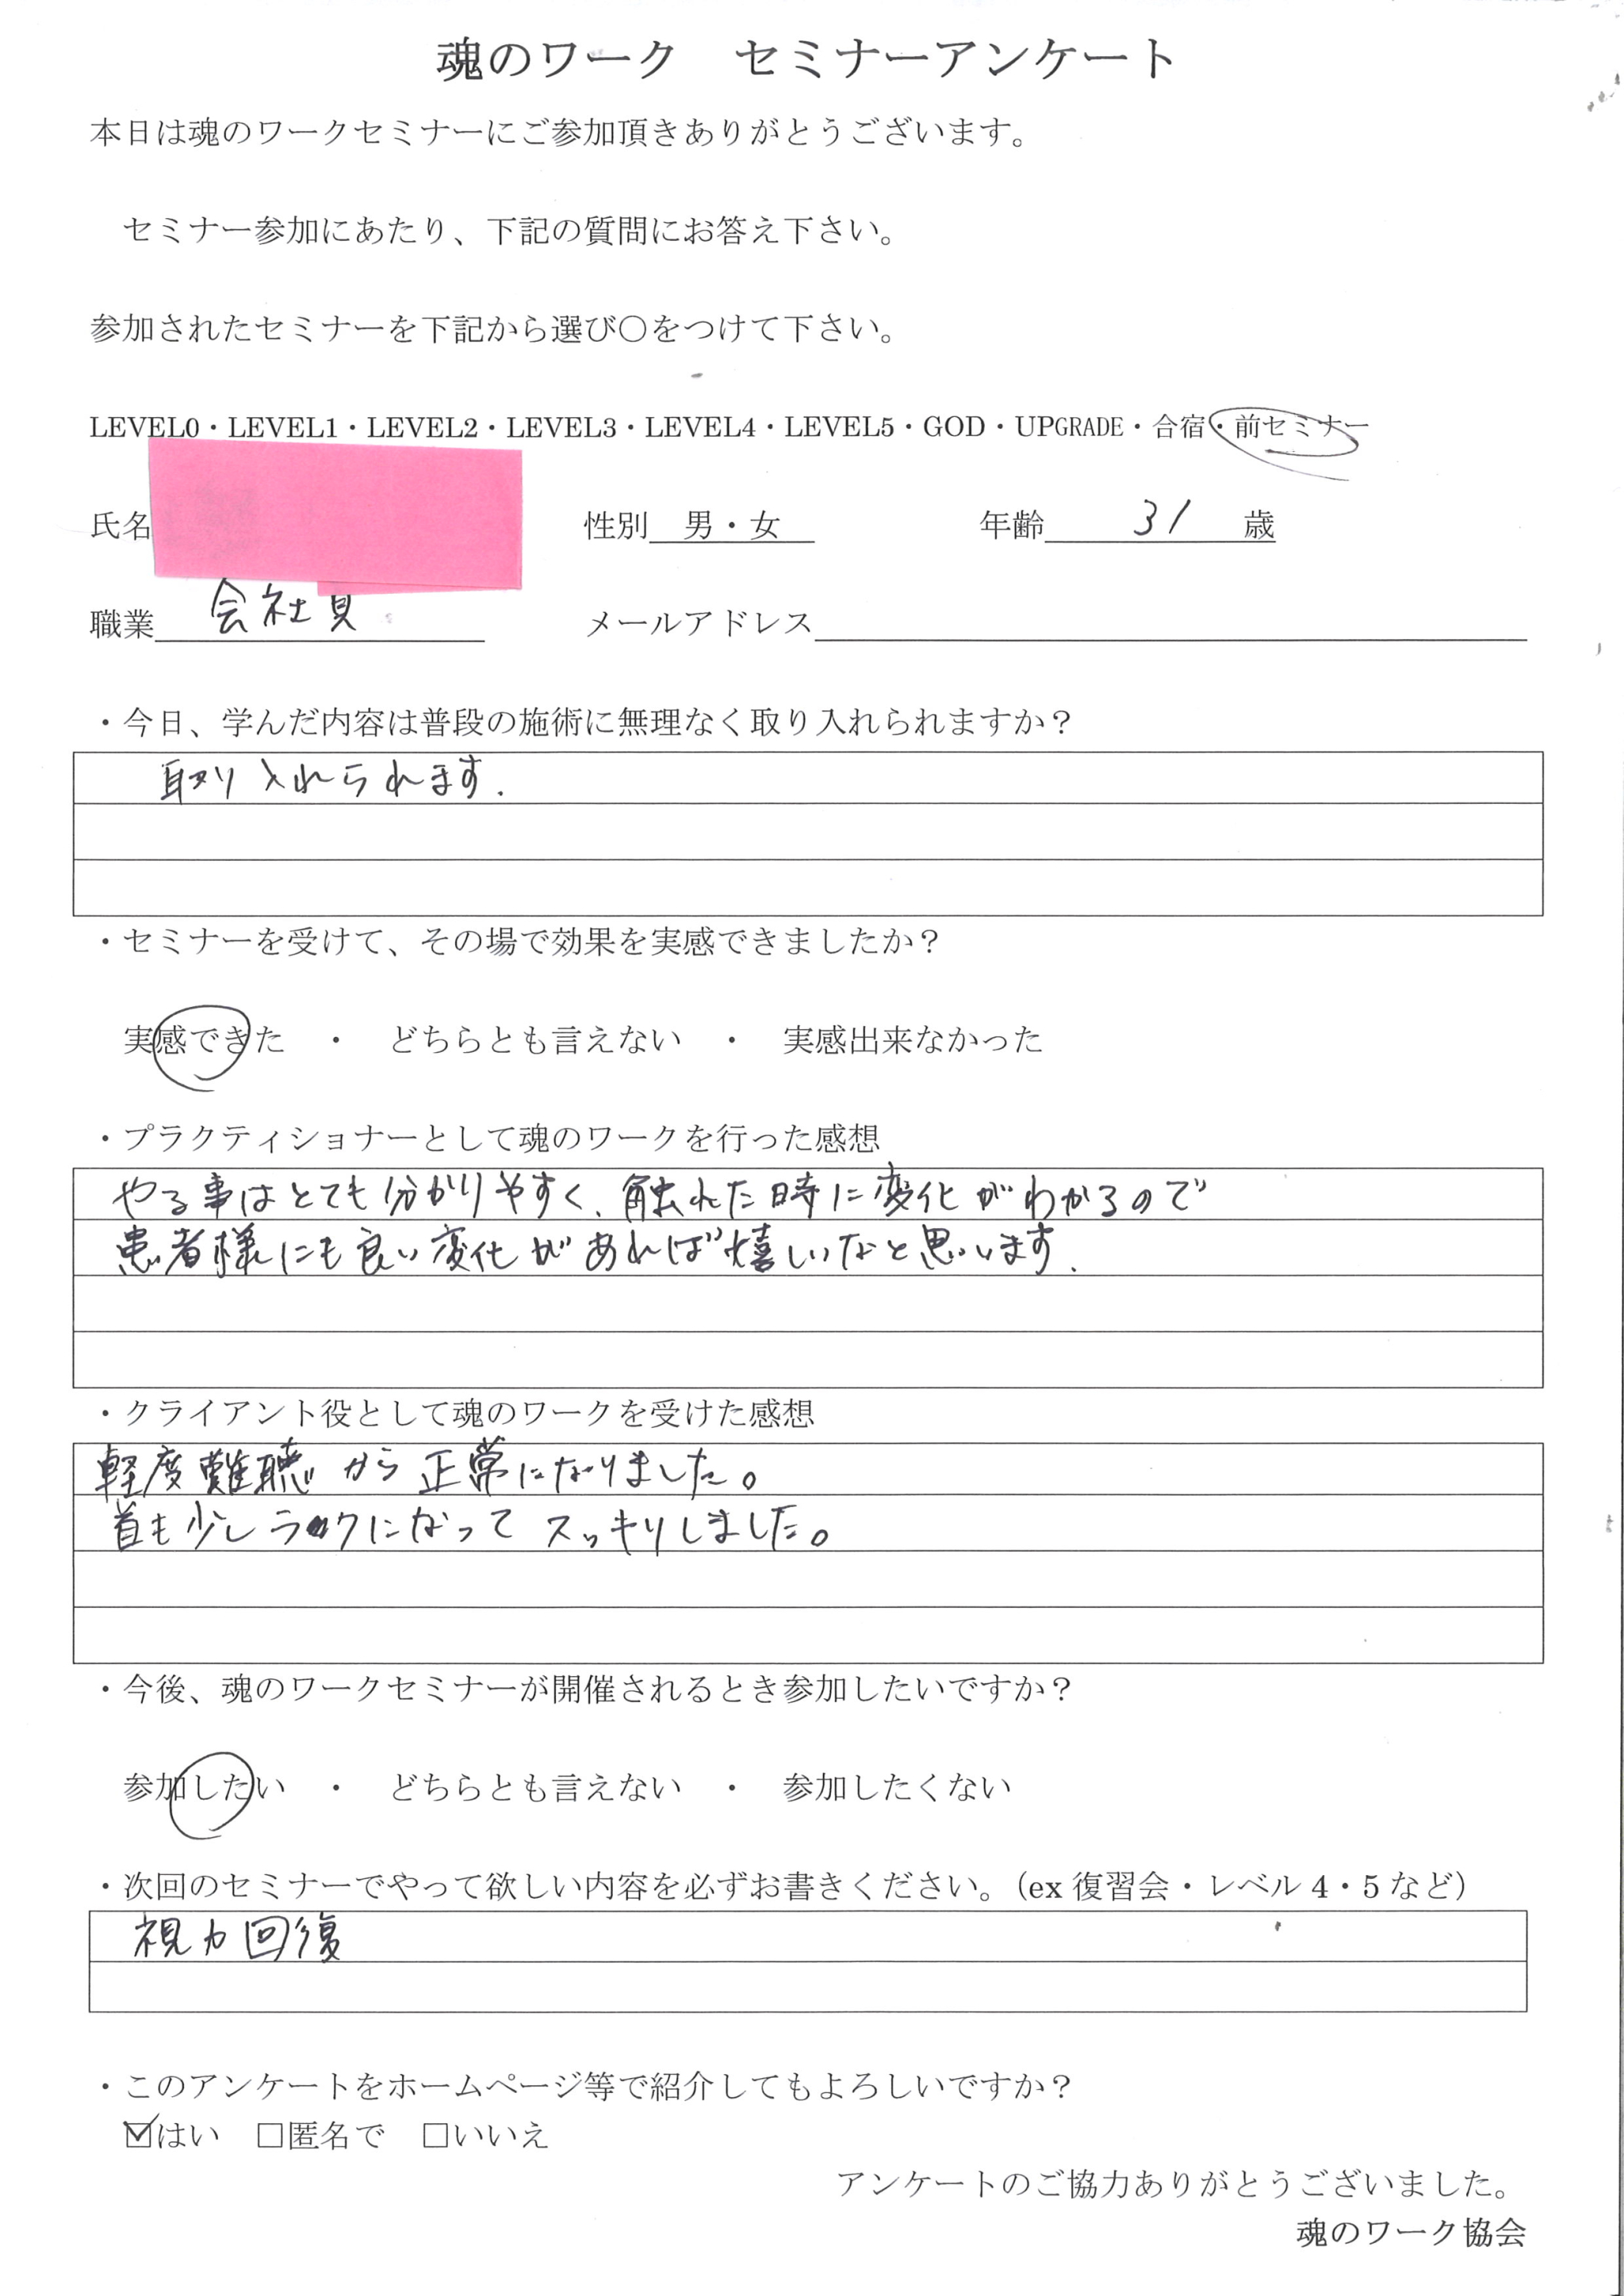 魂のワーク　セミナーアンケート
本日は魂のワークセミナーにご参加頂きありがとうございます。
セミナー参加にあたり、下記の質問にお答え下さい。
参加されたセミナーを下記から選び〇をつけて下さい。
LEVEL0・LEVEL1・LEVEL2・LEVEL3・LEVEL4・LEVEL5・GOD・UPGRADE・合宿・前セミナー
氏名　性別　男・女　年齢　31　歳
職業　会社員　メールアドレス
・今日、学んだ内容は普段の施術に無理なく取り入れられますか？
取り入れられます.
・セミナーを受けて、その場で効果を実感できましたか？
実感できた　・　どちらとも言えない　・　実感出来なかった
・プラクティショナーとして魂のワークを行った感想
やる事はとても分かりやすく、触れた時に変化がわかるので
患者様にも良い変化があれば嬉しいなと思います.
・クライアント役として魂のワークを受けた感想
軽度難聴から正常になりました。
首も少しラクになって スッキリしました。
・今後、魂のワークセミナーが開催されるとき参加したいですか？
参加したい　・　どちらとも言えない　・　参加したくない
・次回のセミナーでやって欲しい内容を必ずお書きください。（ex 復習会・レベル 4・5 など）
視力回復
・このアンケートをホームページ等で紹介してもよろしいですか？
☑はい　□匿名で　□いいえ
アンケートのご協力ありがとうございました。
魂のワーク協会